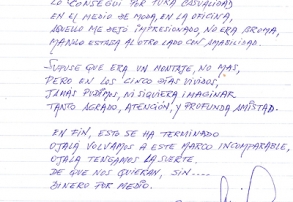 LO CONSEGUÍ POR PURA CASUALIDAD
EN EL MEDIO DE MODA, EN LA OFICINA,
AQUELLO ME DEJÓ IMPRESIONADO, NO ERA BROMA,
ESTABA AL OTRO LADO CON AMABILIDAD.
SUPUSE QUE ERA UN MONTAJE, NO MAS,
PERO EN LOS CINCO DÍAS VIVIDOS,
JAMÁS PUDIMOS, NI SIQUIERA IMAGINAR
TANTO AGRADO, ATENCIÓN, Y PROFUNDA AMISTAD.
EN FIN, ESTO SE HA TERMINADO
OJALÁ VOLVAMOS A ESTE MARCO INCOMPARABLE,
OJALÁ TENGAMOS LA SUERTE
DE QUE NOS QUIERAN, SIN....
DINERO POR MEDIO.